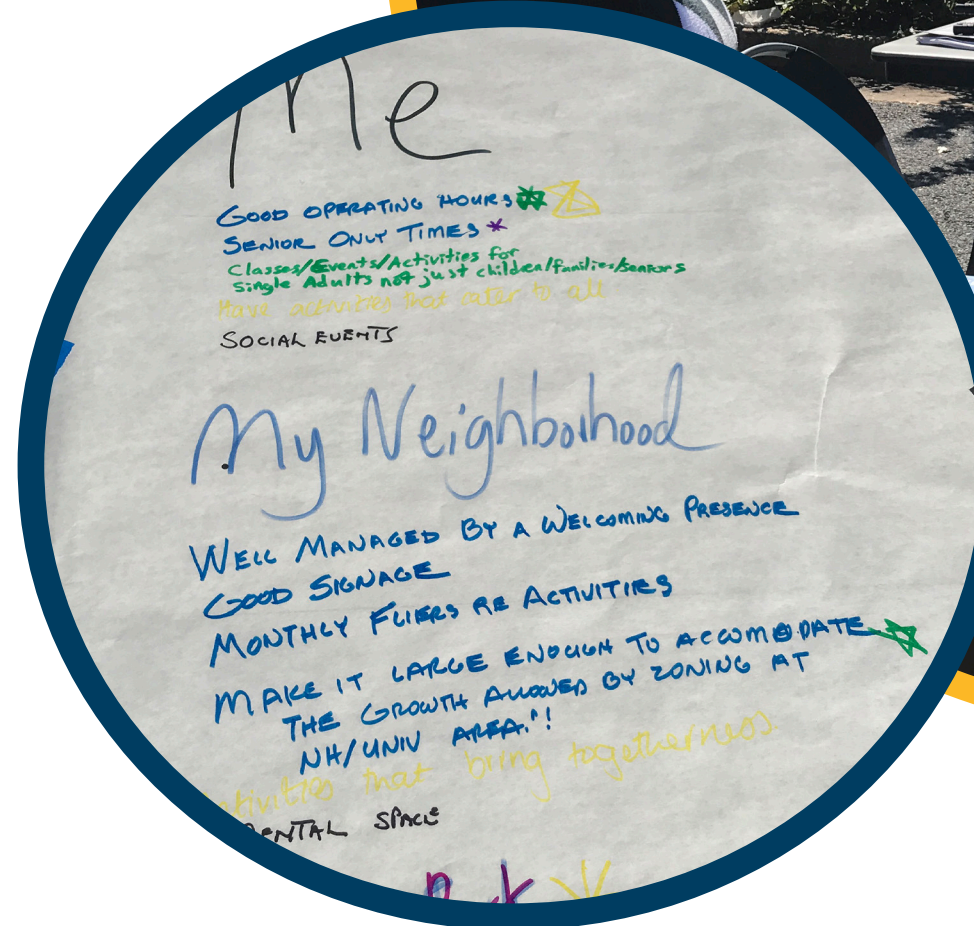 Me
GOOD OPERATING HOURS
SENIOR ONLY TIMES *
Classes/Events/Activities for
Single Adults not just children/families/seniors
Have activities that cater to all
SOCIAL EVENTS
My Neighborhood
WELL MANAGED BY A WELCOMING PRESENCE
GOOD SIGNAGE
MONTHLY FLIERS RE ACTIVITIES
MAKE IT LARGE ENOUGH TO ACCOMODATE
THE GROWTH ALLOWED BY ZONING AT
NH/UNIV AREA.!
tivities that bring togetherness
ENTAL SPACE